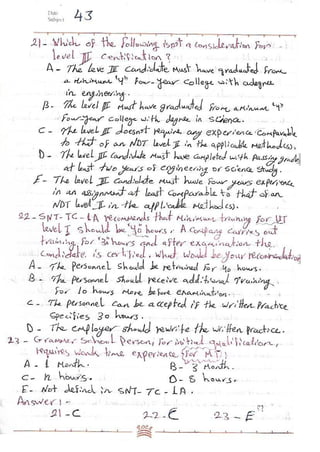 Date:
Subject: 43
21- Which of the following isnot a consideration For
level III Certification?
A - The leve III Candidate must have graduated From
a minimum "4" Four-year College with a degree
in engineering.
B- The level III must have graduated from a minimum "4"
Four-year College with degree in Science.
C - The level III doesnot require any experience Comparable
to that of an NDT level II in the applicable method(s).
D - The level III Candidate must have completed with passing grades
at least two years of engineering or Science Study.
E - The level III Candidate must have Four years experience
in an assignment at least comparable to that of an
NDT level II in the applicable method(s).
22-SNT-TC-1A recommends that minimum training for UT
level I should be "40 hours". A Company carries out
training for "30 hours and after examination the
Candidate is certified. What would be your recommendation
A - The personnel should be retrained for 40 hours.
B - The personnel should receive additional Training
For 10 hours more before examination.
C - The personnel can be accepted if the written Practice
Specifies 30 hours.
D - The employer should rewrite the written Practice.
23 - Grammer School Person, for initial qualification,
requires work time experience (for MT):
A - 1 Month. B - 3 Month.
C - 12 hours. D - 8 hours.
E - Not defind in SNT-TC-1A.
Answer:-
21-C 22-C 23-E